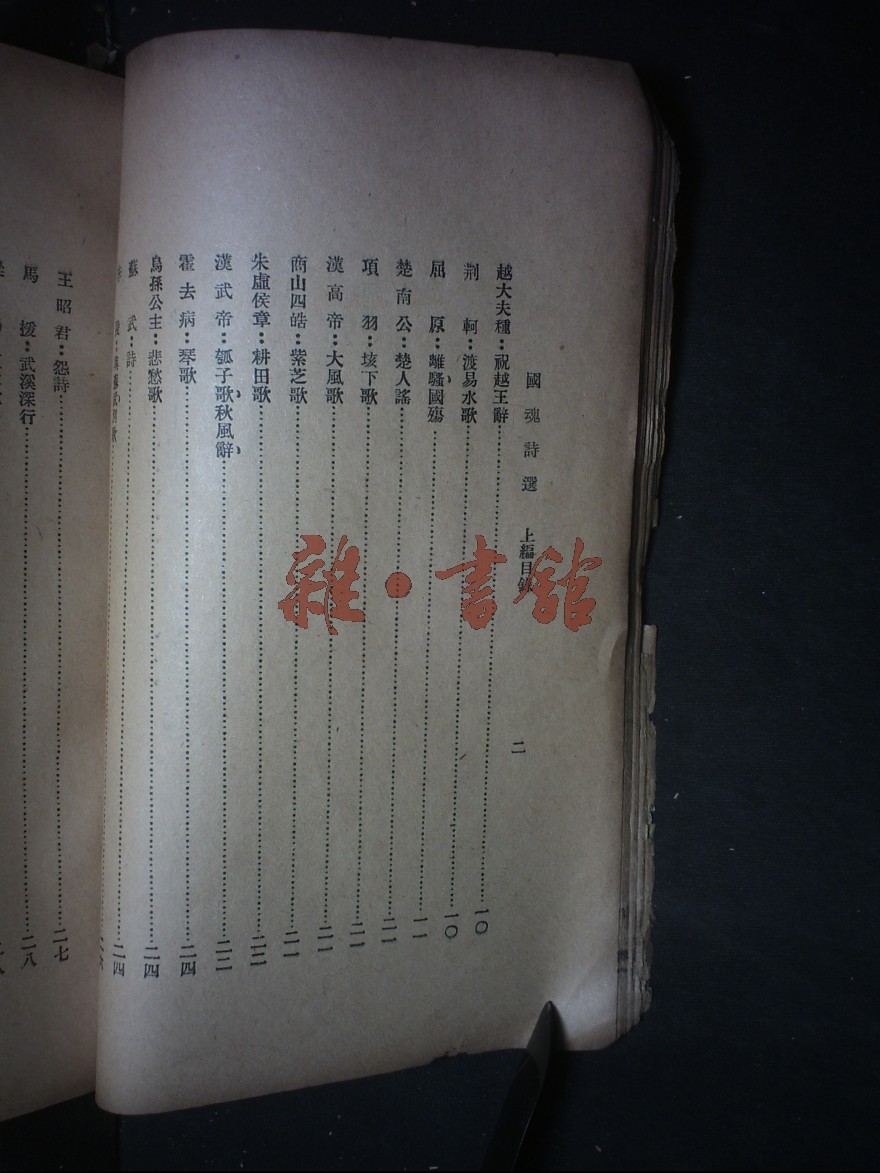 國魂詩選 上編目錄 二
越大夫種：祝越王辭……一〇
荆軻：渡易水歌……一〇
屈原：離騷、國殤……一一
楚南公：楚人謠……二一
項羽：垓下歌……二一
漢高帝：大風歌……二一
商山四皓：紫芝歌……二一
朱虛侯章：耕田歌……二二
漢武帝：瓠子歌、秋風辭、……二二
霍去病：琴歌……二四
烏孫公主：悲愁歌……二四
蘇武：詩……二四
王昭君：怨詩……二七
馬援：武溪深行……二八
雜·書館